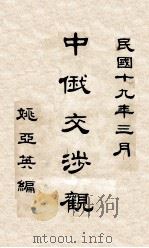 民國十九年三月
中俄交涉觀
姚亞英編
mtoou.info